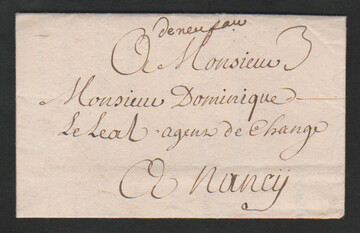 deneufau
A Monsieur 3
Monsieur Dominique
Le Leal agent de Change
A Nancÿ